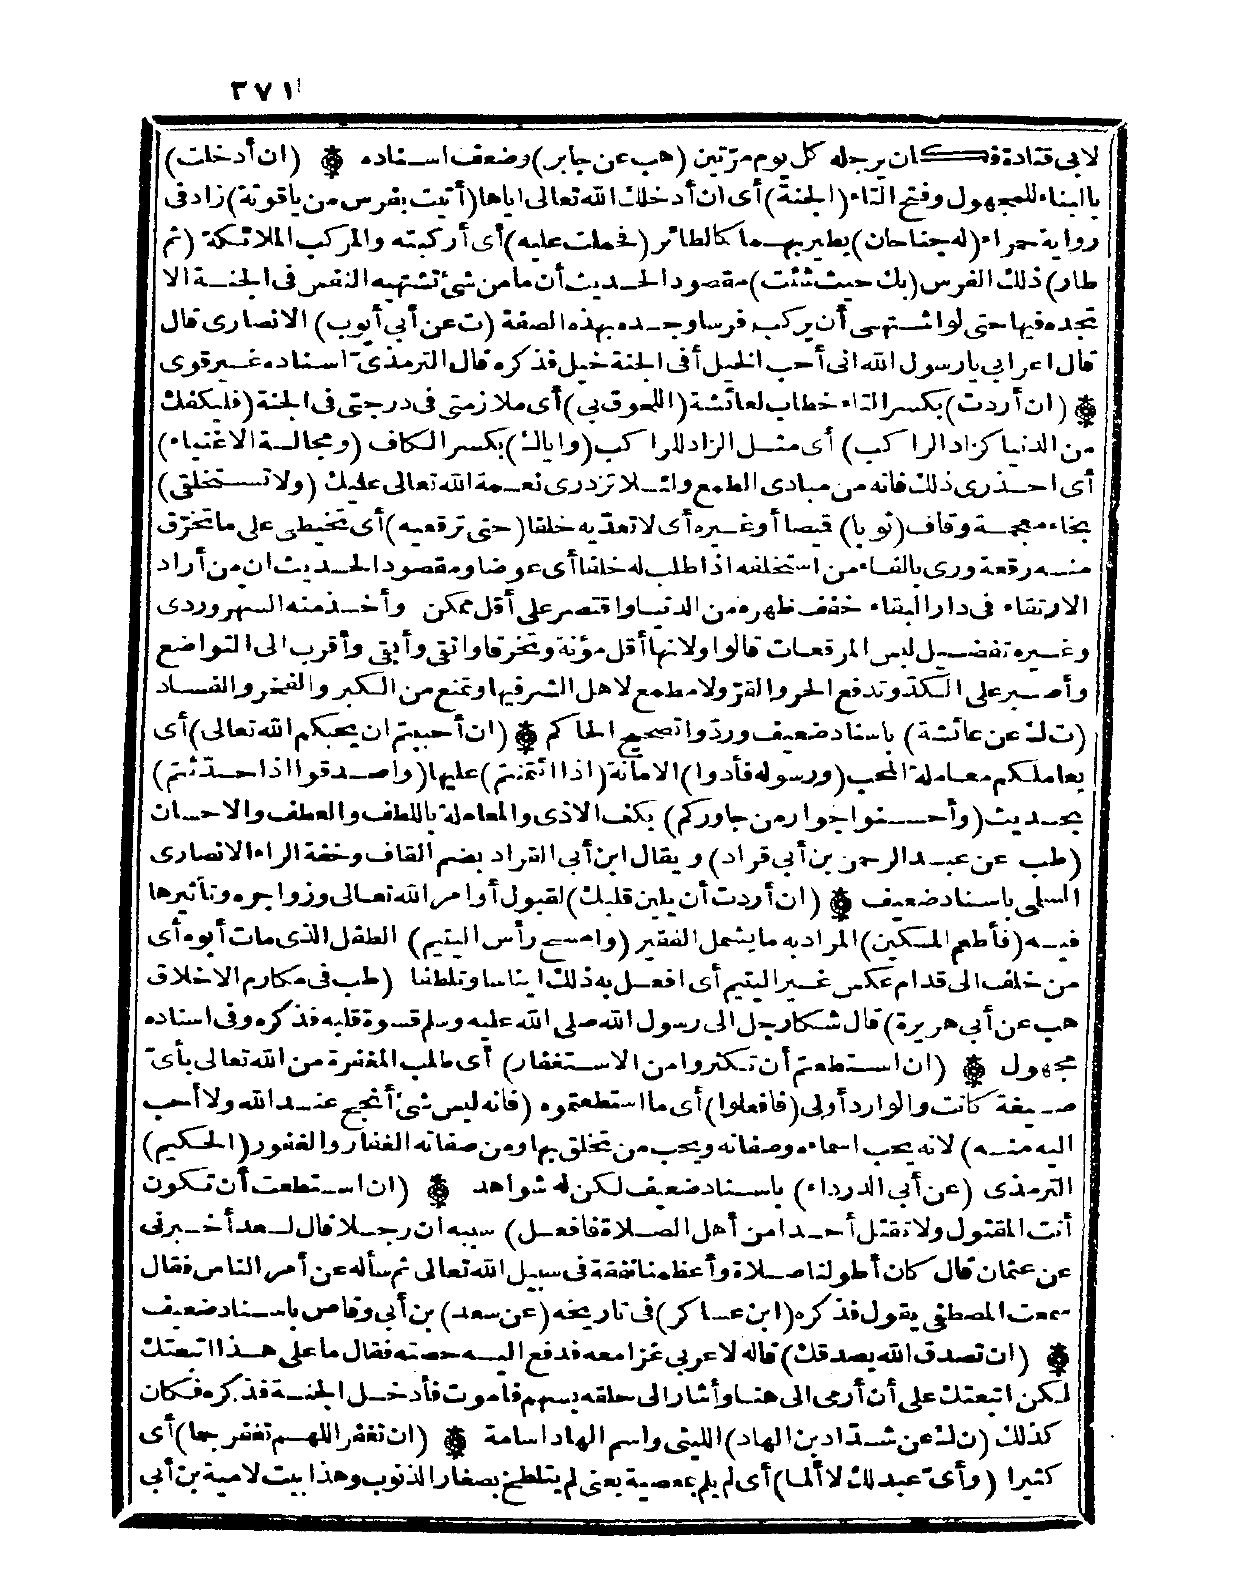 ٣٧١
لابى قتادة فكان يرجله كل يوم مرّتين (هب عن جابر) وضعف اسناده ۞ (ان أدخلت)
بالبناء للمجهول وفتح التاء (الجنة) أى ان أدخلك الله تعالى اياها (أتيت بفرس من ياقوتة) زاد فى
رواية حمراء (له جناحان) يطير بهما كالطائر (فحملت عليه) أى أركبته والمركب الملائكة (ثم
طار) ذلك الفرس (بك حيث شئت) مقصود الحديث أن ما من شئ تشتهيه النفس فى الجنة الا
تجده فيها حتى لو اشتهى أن يركب فرسا وجده بهذه الصفة (ت عن أبى أيوب) الانصارى قال
قال اعرابى يا رسول الله انى أحب الخيل أفى الجنة خيل فذكره قال الترمذىّ اسناده غير قوى
۞ (ان أردت) بكسر التاء خطاب لعائشة (اللحوق بى) أى ملازمتى فى درجتى فى الجنة (فليكفك
من الدنيا كزاد الراكب) أى مثل الزاد للراكب (واياك) بكسر الكاف (ومجالسة الاغنياء)
أى احذرى ذلك فانه من مبادى الطمع ولئلا تزدرى نعمة الله تعالى عليك (ولا تستخلقى)
بخاء معجمة وقاف (ثوبا) قيصا أو غيره أى لا تعدّيه خلقا (حتى ترقعيه) أى تخيطى على ما تخرّق
منه رقعة وروى بالفاء من استخلفه اذا طلب له خلفا أى عوضا ومقصود الحديث ان من أراد
الارتقاء فى دار البقاء خفف ظهره من الدنيا واقتصر على أقل ممكن وأخذ منه السهروردى
وغيره تفضيل لبس المرقعات قالوا ولانها أقل مؤنة وتخرقا وانقى وأبقى وأقرب الى التواضع
وأصبر على الكدّ وتدفع الحر والقرّ ولا مطمع لاهل الشرفيها وتمنع من الكبر والفخر والفساد
(ت ك عن عائشة) باسناد ضعيف وردّوا تصحيح الحاكم ۞ (ان أحببتم ان يحبكم الله تعالى) أى
يعاملكم معاملة المحب (ورسوله فأدوا) الامانة (اذا ائتمنتم) عليها (واصدقوا اذا حدّثتم)
بحديث (وأحسنوا جوار من جاوركم) بكف الاذى والمعاملة باللطف والعطف والاحسان
(طب عن عبد الرحمن بن أبى قراد) ويقال ابن أبى القراد بضم القاف وخفة الراء الانصارى
السلمى باسناد ضعيف ۞ (ان أردت أن يلين قلبك) لقبول أوامر الله تعالى وزواجره وتأثيرها
فيه (فأطعم المسكين) المراد به ما يشمل الفقير (وامسح رأس اليتيم) الطفل الذى مات أبوه أى
من خلف الى قدام عكس غير اليتيم أى افعل به ذلك ايناسا وتلطفا (طب فى مكارم الاخلاق
هب عن أبى هريرة) قال شكا رجل الى رسول الله صلى الله عليه وسلم قسوة قلبه فذكره وفى اسناده
مجهول ۞ (ان استطعتم أن تكثروا من الاستغفار) أى طلب المغفرة من الله تعالى بأىّ
صيغة كانت والوارد أولى (فافعلوا) أى ما استطعتموه (فانه ليس شئ أنجح عند الله ولا أحب
اليه منه) لانه يحب اسماءه وصفاته ويحب من تخلق بها ومن صفاته الغفار والغفور (الحكيم)
الترمذى (عن أبى الدرداء) باسناد ضعيف لكن له شواهد ۞ (ان استطعت أن تكون
أنت المقتول ولا تقتل أحدا من أهل الصلاة فافعل) سببه ان رجلا قال لسعد أخبرنى
عن عثمان قال كان أطولنا صلاة وأعظمنا نفقة فى سبيل الله تعالى ثم سأله عن أمر الناس فقال
سمعت المصطفى يقول فذكره (ابن عساكر) فى تاريخه (عن سعد) بن أبى وقاص باسناد ضعيف
۞ (ان تصدق الله يصدقك) قاله لاعربى غزا معه فدفع اليه حصته فقال ما على هذا اتبعتك
لكن اتبعتك على أن أرمى الى هنا وأشار الى حلقه بسهم فاموت فأدخل الجنة فذكره فكان
كذلك (ن ك عن شدّاد بن الهاد) الليثى واسم الهاد اسامة ۞ (ان تغفر اللهم تغفر جما) أى
كثيرا (وأىّ عبد لك لا ألما) أى لم يلم بمعصية يعنى لم يتلطخ بصغار الذنوب وهذا بيت لامية بن أبى